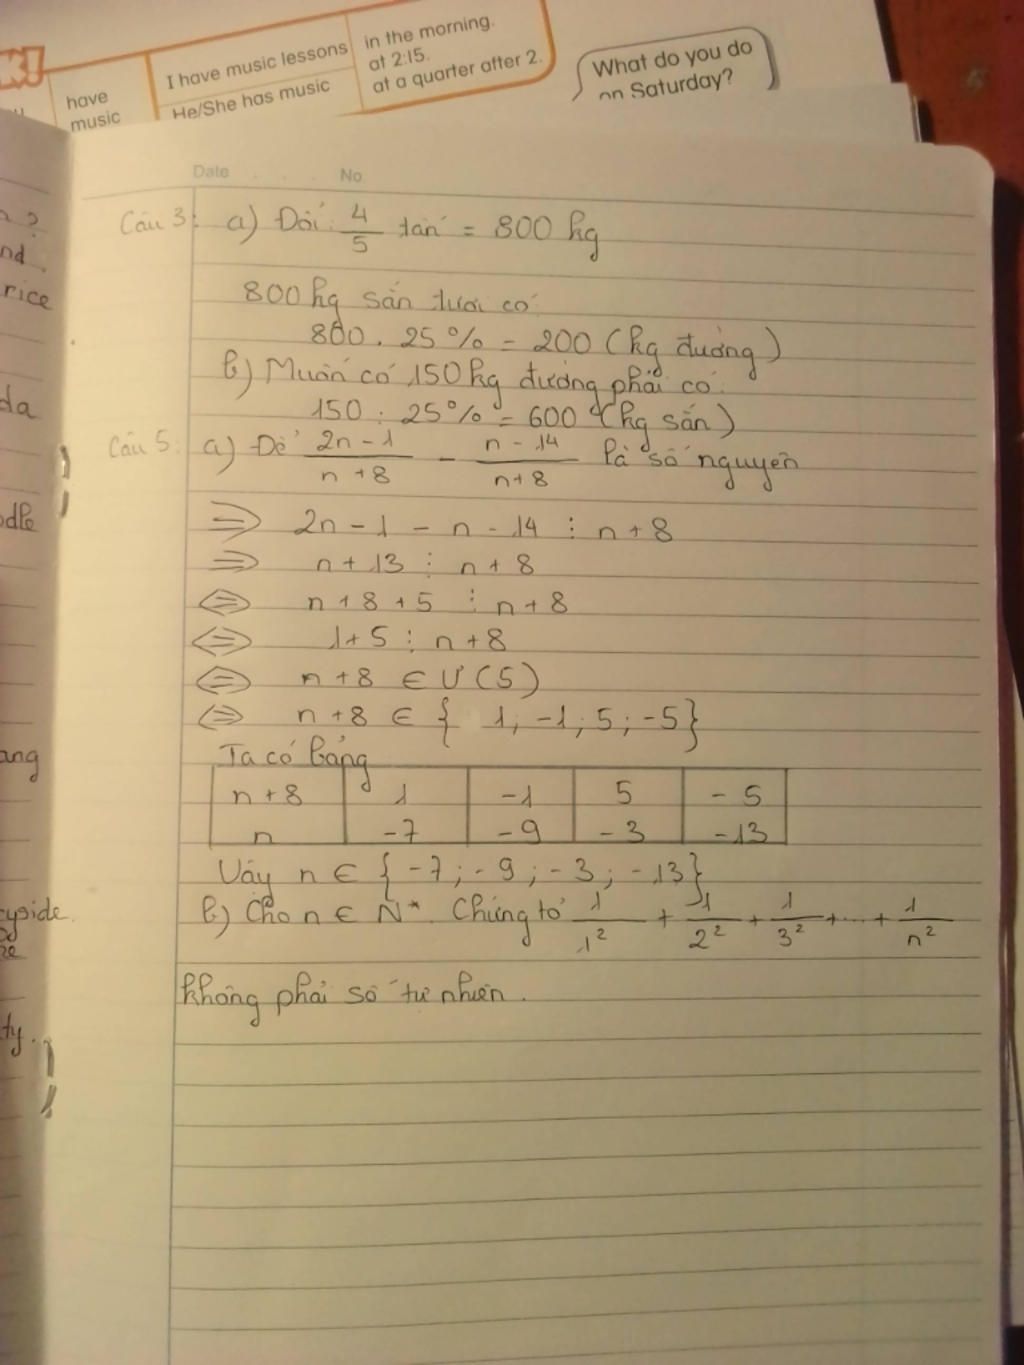 K!
have
music
I have music lessons
He/She has music
in the morning.
at 2:15.
at a quarter after 2.
What do you do
on Saturday?
Date . . . No
nd.
rice
da
odle
ang
yside.
ty.
Câu 3: a) Đổi: 4/5 tấn = 800 kg
800 kg sắn tươi có:
800 . 25% = 200 (kg đường)
b) Muốn có 150 kg đường phải có:
150 : 25% = 600 (kg sắn)
Câu 5: a) Để (2n - 1)/(n + 8) - (n - 14)/(n + 8) là số nguyên
=> 2n - 1 - n - 14 ⋮ n + 8
=> n + 13 ⋮ n + 8
<=> n + 8 + 5 ⋮ n + 8
<=> 1 + 5 ⋮ n + 8
<=> n + 8 ∈ Ư (5)
<=> n + 8 ∈ { 1; -1; 5; -5}
Ta có bảng
n + 8 1 -1 5 -5
n -7 -9 -3 -13
Vậy n ∈ { -7; -9; -3; -13}
b) Cho n ∈ N*. Chứng tỏ 1/1² + 1/2² + 1/3² + ... + 1/n²
không phải số tự nhiên.